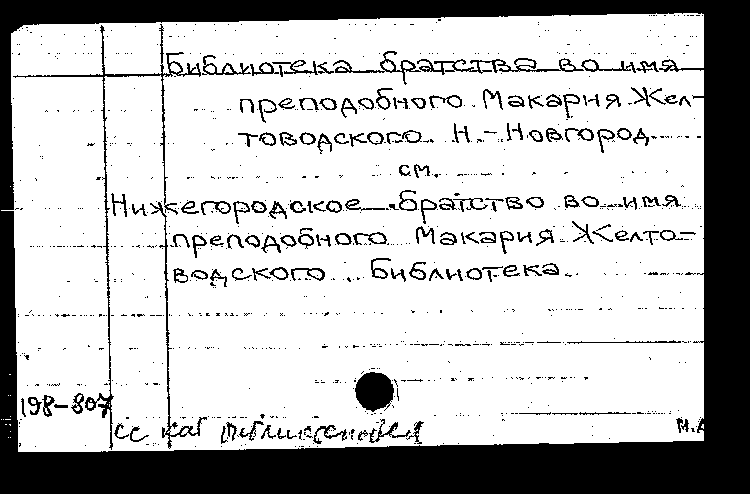 Библиотека братства во имя
преподобного Макария Жел-
товодского. Н.-Новгород.
см.
Нижегородское братство во имя
преподобного Макария Желто-
водского. Библиотека.
198-807
сс кат